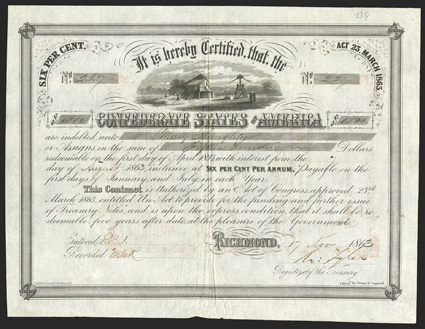 184
SIX PER CENT.
It is hereby Certified, that, the
ACT 23, MARCH 1863.
No
No
$
$
CONFEDERATE STATES OF AMERICA
are indebted unto
or Assigns in the sum of Dollars
redeemable on the first day of April with interest from the
day of August 1863, inclusive at SIX PER CENT PER ANNUM, Payable on the
first days of January, and July, in each Year.
This Contract is Authorized by an Act of Congress, approved 23rd
March 1863, entitled An Act to provide for the funding and further issue
of Treasury Notes, and is upon the express condition, that it shall be re-
deemable five years after date, at the pleasure of the Government.
Entered
RICHMOND, 17 Nov 1863
Recorded
Register of the Treasury